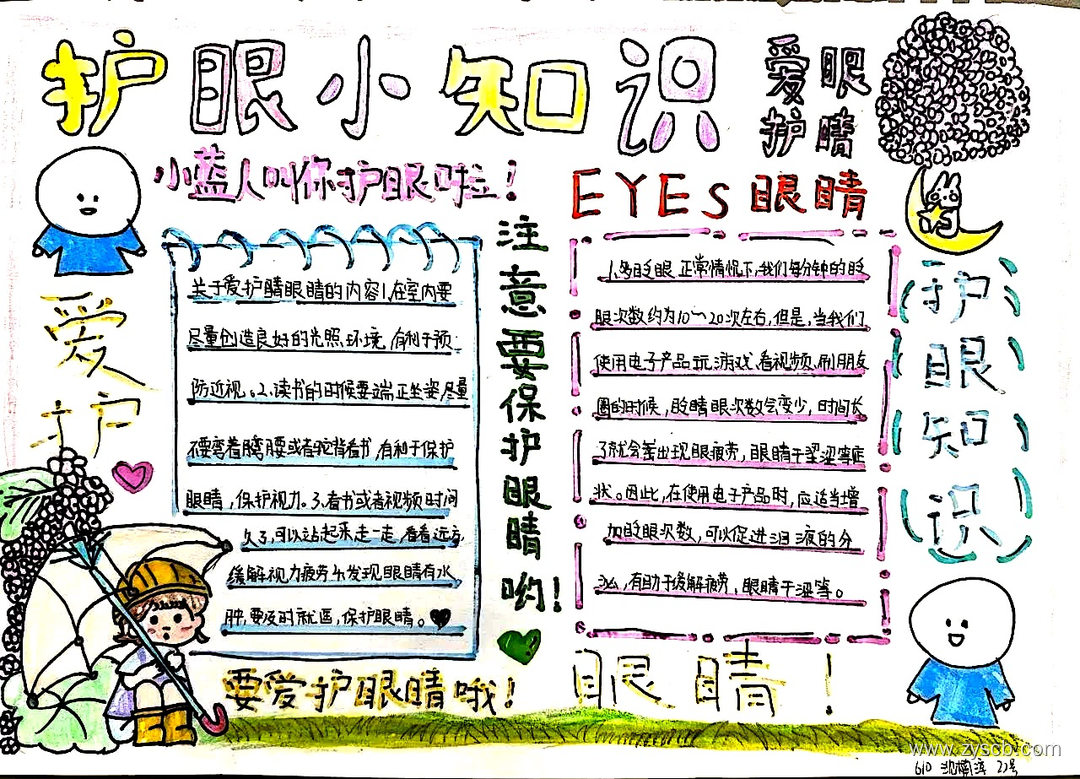 护眼小知识
爱眼
护睛
小蓝人叫你护眼啦！
EYEs 眼睛
爱护
关于爱护睛眼睛的内容1,在室内要
尽量创造良好的光照、环境，有利于预
防近视。2、读书的时候要端正坐姿尽量
不要弯着腰或者驼背看书,有利于保护
眼睛，保护视力。3、看书或者视频时间
久了,可以站起来走一走,看看远方,
缓解视力疲劳4、发现眼睛有水
肿,要及时就医,保护眼睛。
注意要保护眼睛哟！
1、多眨眼 正常情况下,我们每分钟的眨
眼次数约为10~20次左右,但是,当我们
使用电子产品玩游戏、看视频、刷朋友
圈的时候，眨睛眼次数会变少，时间长
了就会出现眼疲劳，眼睛干涩等症
状。因此,在使用电子产品时,应适当增
加眨眼次数,可以促进泪液的分
泌,有助于缓解疲劳，眼睛干涩等。
护眼知识
要爱护眼睛哦！
眼睛！
www.zyscb.com
610 沈 号